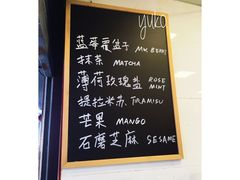 yuko
蓝莓覆盆子 MIX BERRY
抹茶 MATCHA
薄荷玫瑰盐 ROSE MINT
提拉米苏 TIRAMISU
芒果 MANGO
石磨芝麻 SESAME